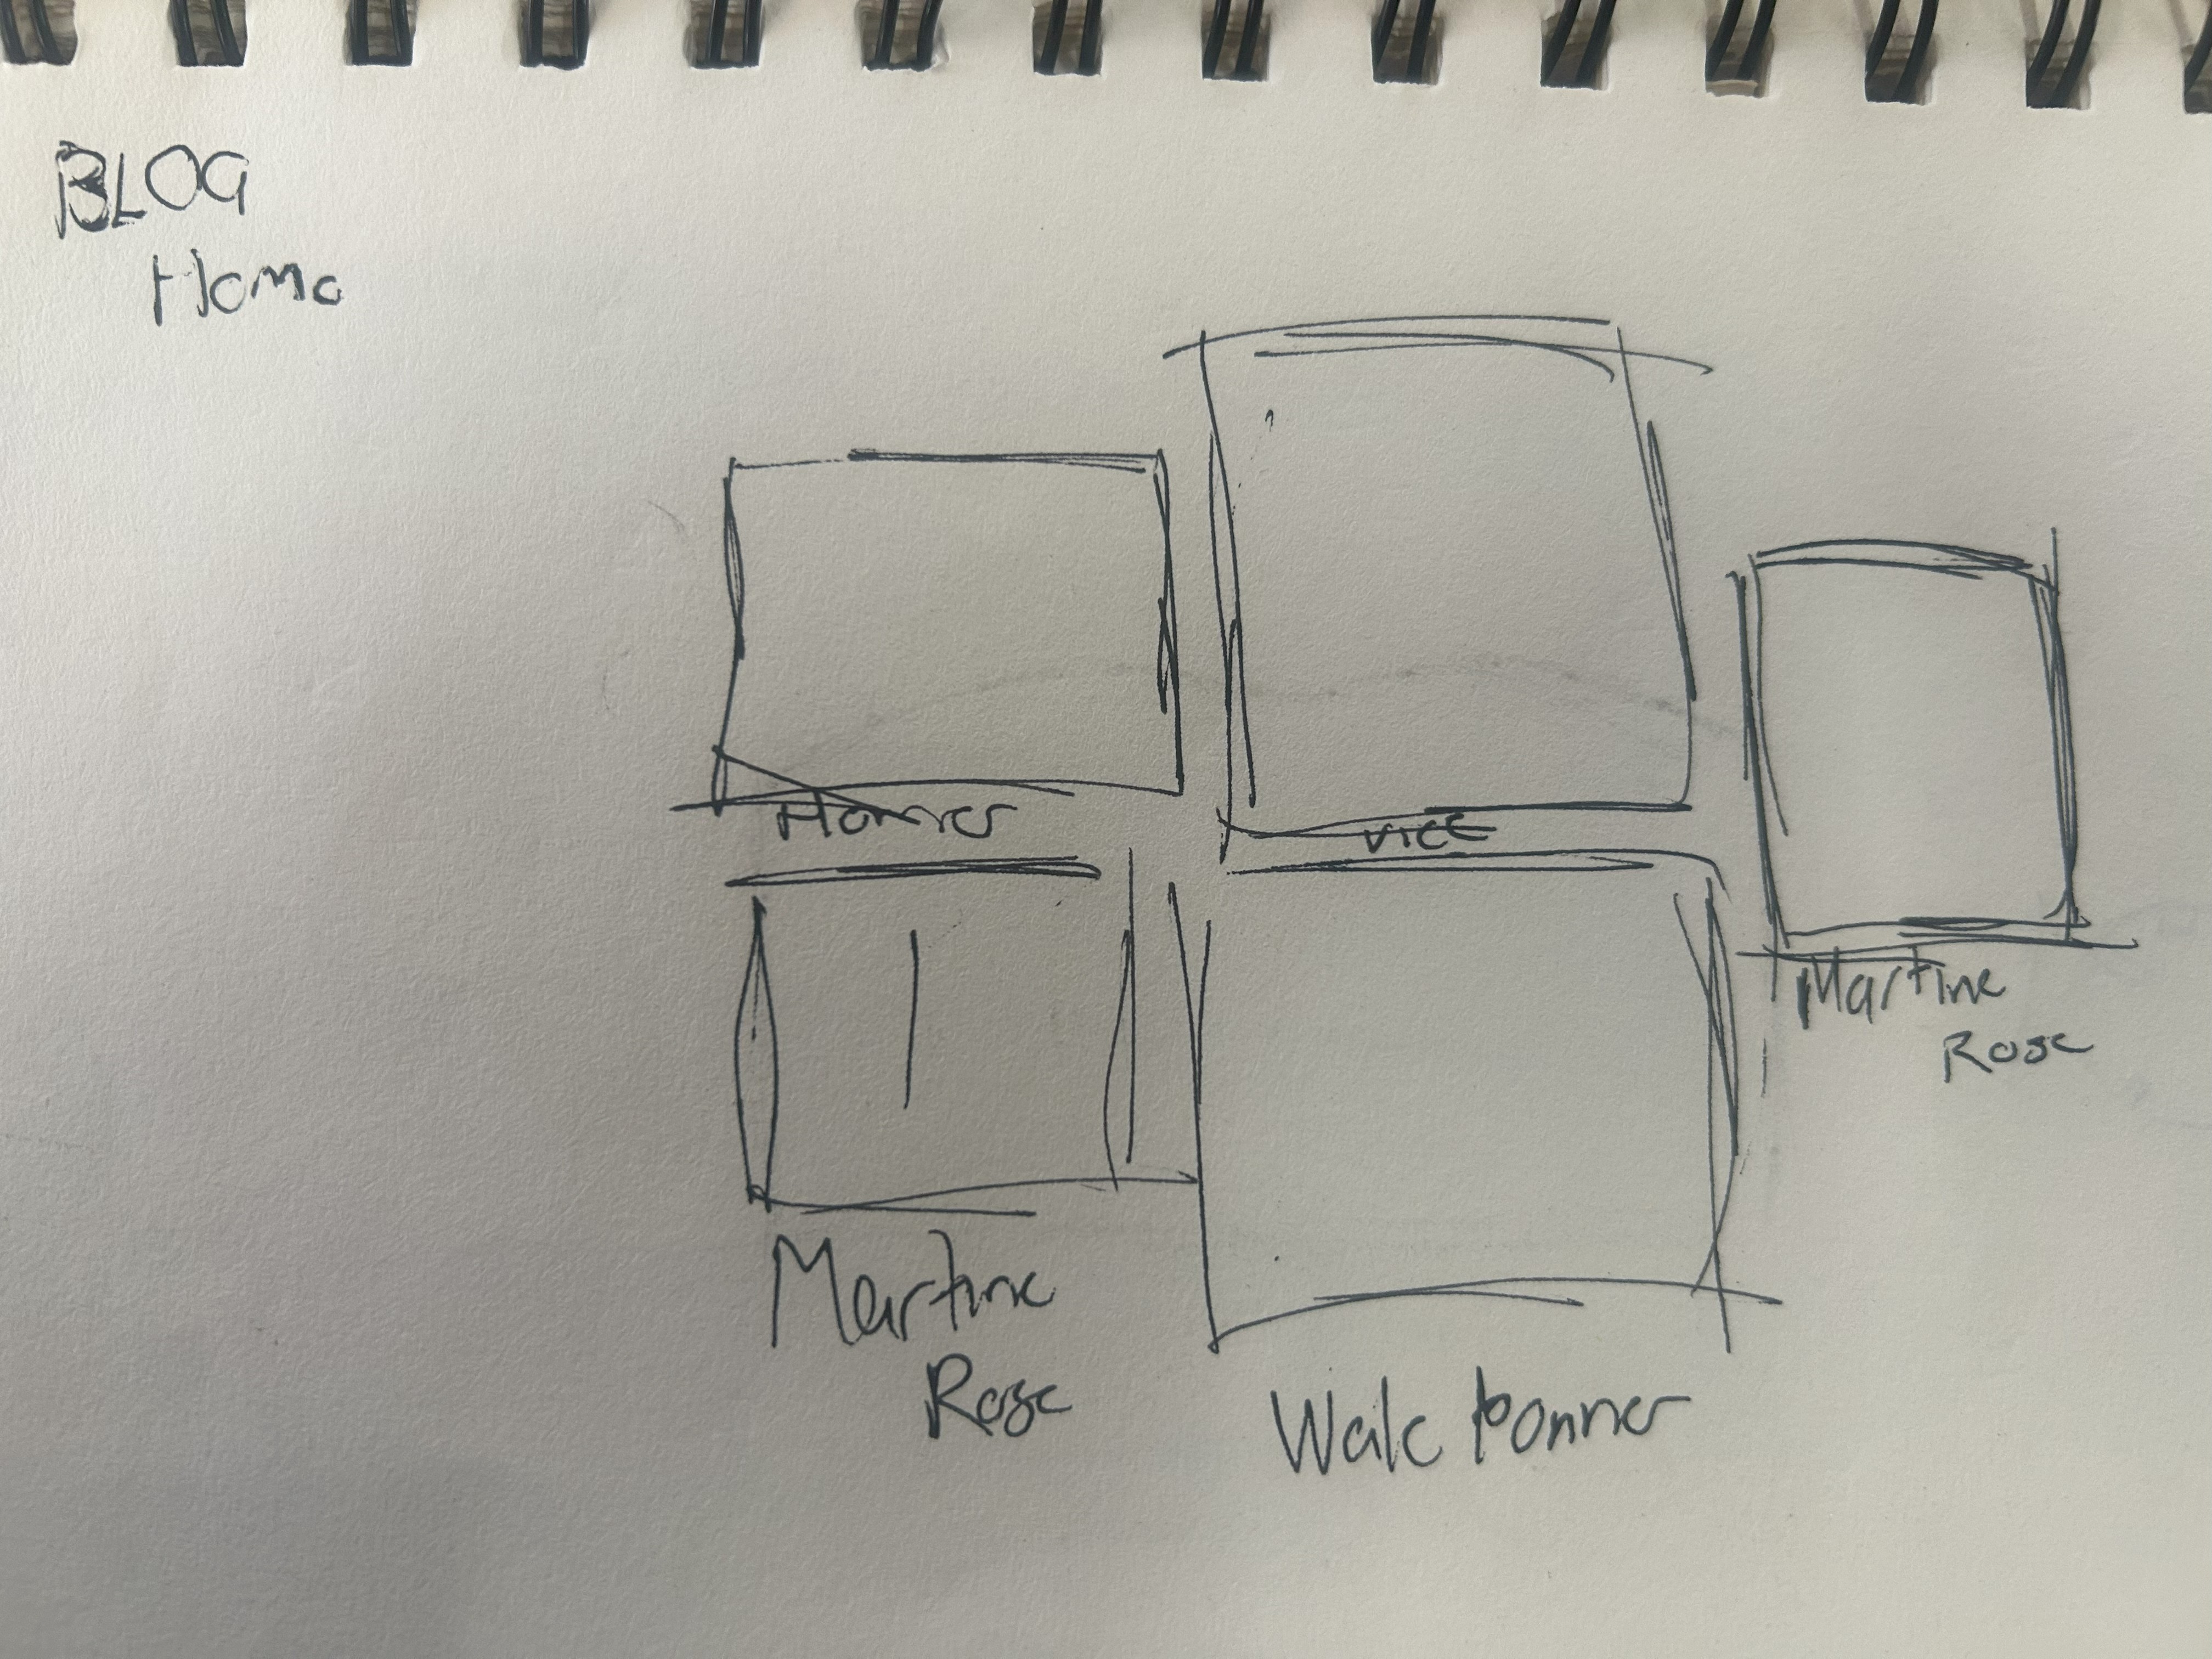 BLOG
Home
Homer
VICE
Martine
Rose
Martine
Rose
Wale bonner